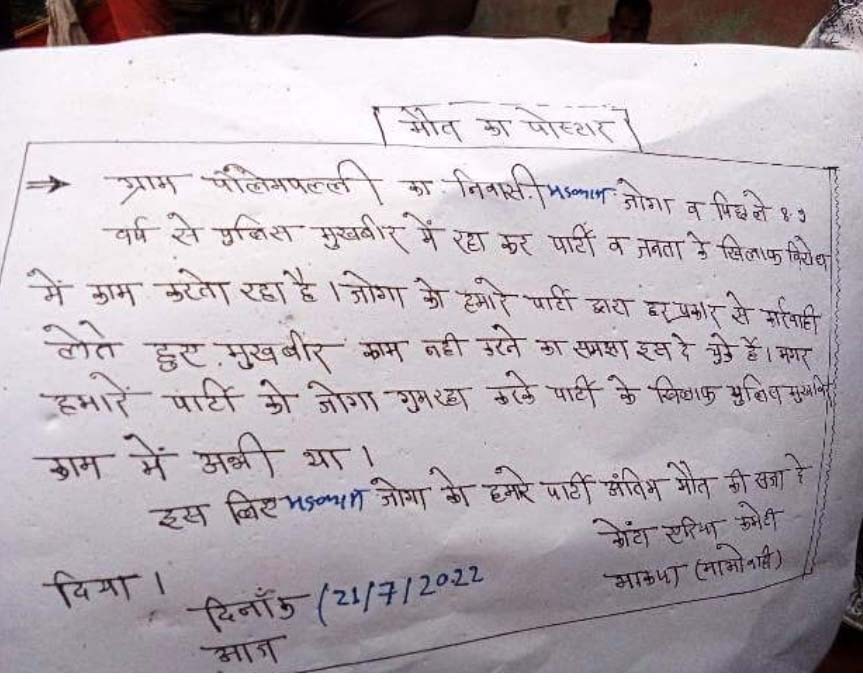 मौत का पोस्टर
→ ग्राम पोलेमपल्ली का निवासी जोगा व पिछले
वर्ष से पुलिस मुखबीर में रहा कर पार्टी व जनता के खिलाफ विरोध
में काम करता रहा है। जोगा को हमारे पार्टी द्वारा हर प्रकार से
लेते हुए मुखबीर काम नही करने का समझा इस दे चुके हैं। मगर
हमारें पार्टी को जोगा गुमरहा करके पार्टी के खिलाफ पुलिस
काम में अभी था।
इस लिए जोगा को हमारे पार्टी अंतिम मौत की सजा दे
दिया।
कोंटा एरिया कमेटी
भाकपा (माओवादी)
दिनाँक (21/7/2022
आज